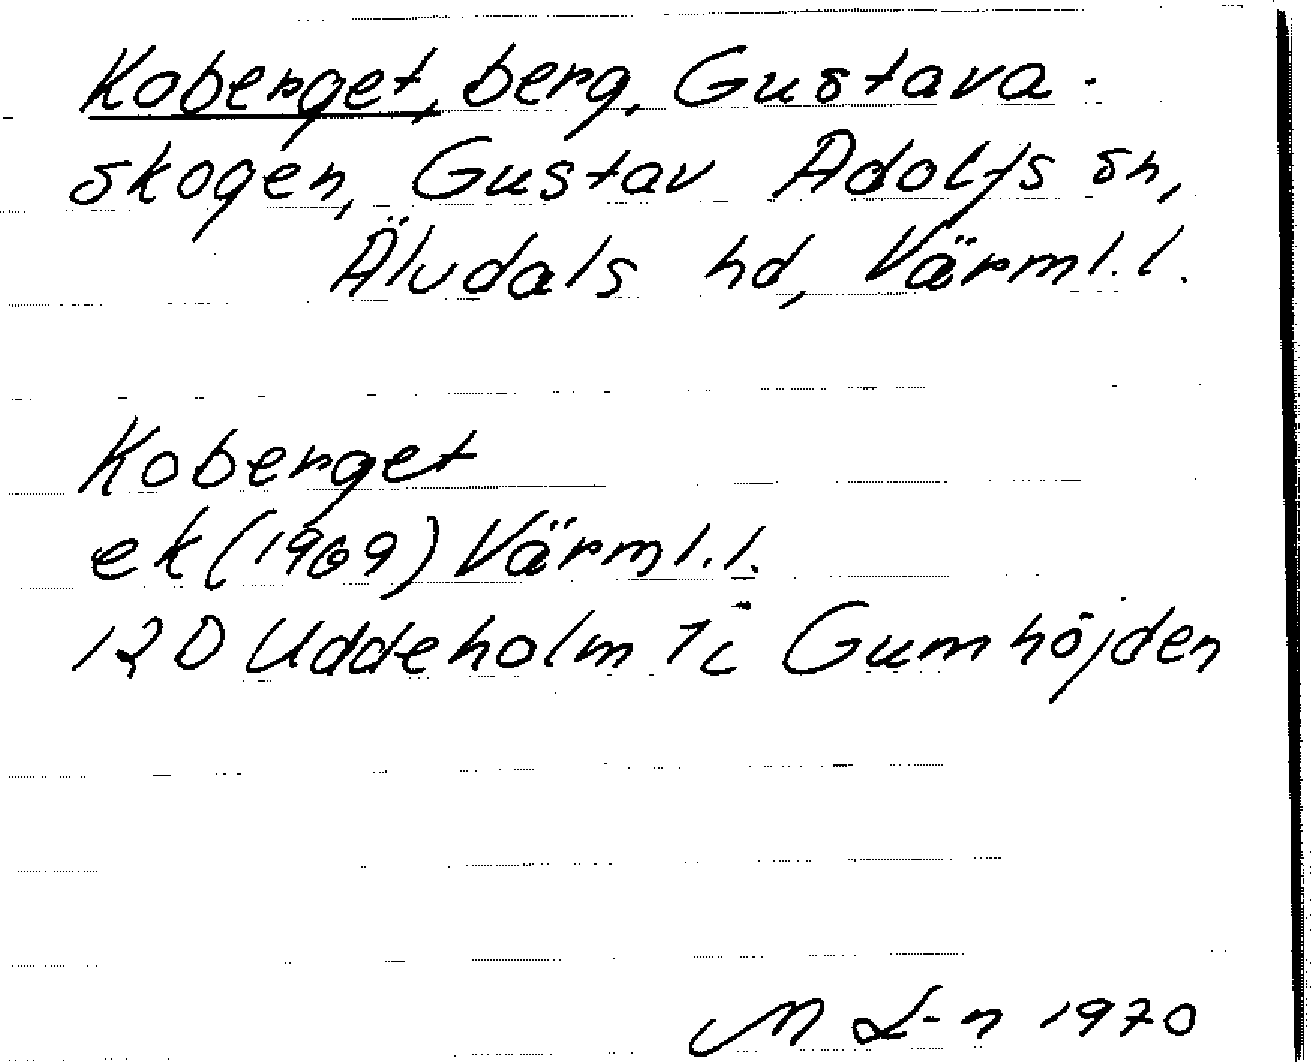 Koberget, berg, Gustava-
skogen, Gustav Adolfs sn,
Älvdals hd, Värml.l.
Koberget
ek (1969) Värml.l.
12D Uddeholm 1c Gumhöjden
M L-n 1970